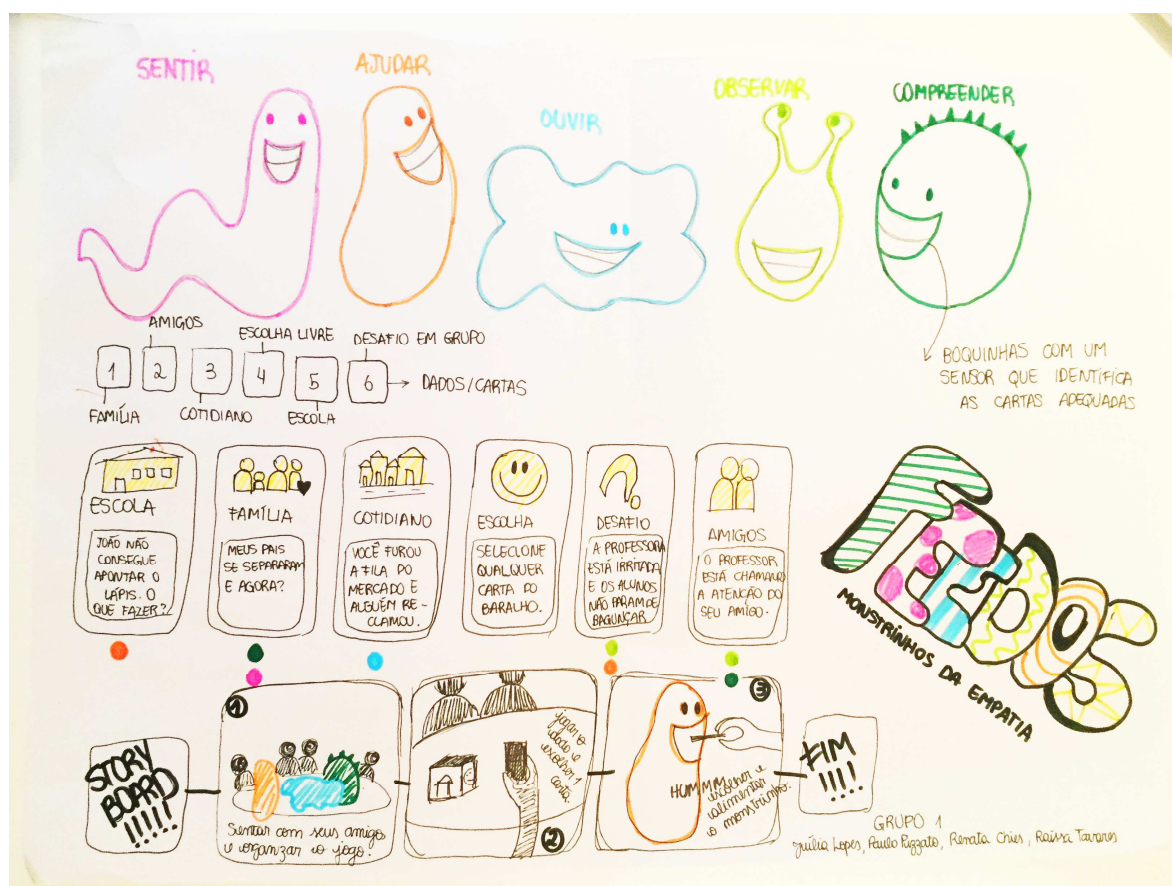 SENTIR
AJUDAR
OUVIR
OBSERVAR
COMPREENDER
AMIGOS
ESCOLHA LIVRE
DESAFIO EM GRUPO
1
2
3
4
5
6
DADOS/CARTAS
FAMÍLIA
COTIDIANO
ESCOLA
BOQUINHAS COM UM
SENSOR QUE IDENTIFICA
AS CARTAS ADEQUADAS
ESCOLA
JOÃO NÃO
CONSEGUE
APONTAR O
LÁPIS. O
QUE FAZER?
FAMÍLIA
MEUS PAIS
SE SEPARARAM
E AGORA?
COTIDIANO
VOCÊ FUROU
A FILA DO
MERCADO E
ALGUÉM RE-
CLAMOU.
ESCOLHA
SELECIONE
QUALQUER
CARTA DO
BARALHO.
DESAFIO
A PROFESSORA
ESTÁ IRRITADA
E OS ALUNOS
NÃO PARAM DE
BAGUNÇAR
AMIGOS
O PROFESSOR
ESTÁ CHAMANDO
A ATENÇÃO DO
SEU AMIGO.
MONSTRINHOS DA EMPATIA
STORY
BOARD
!!!!!!
1
Sentar com seus amigos
e organizar o jogo.
jogar o
dado e
escolher 1
carta.
2
3
HUMMM
escolher e
alimentar
o monstrinho.
FIM
!!!!
GRUPO 1
Júlia Lopes, Paulo Pizzato, Renata Chies, Raissa Tavares